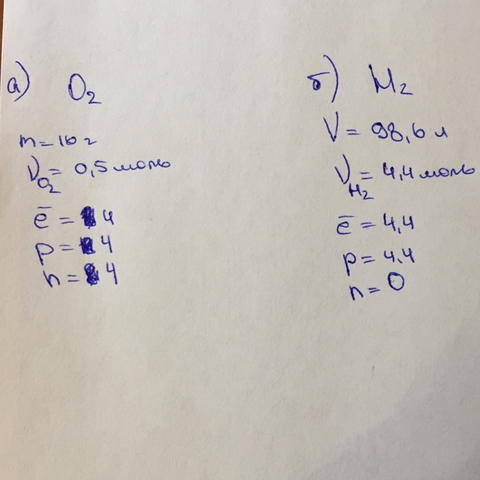 а) O₂
m = 16 г
ν O₂ = 0,5 моль
e̅ = 4
p = 4
n = 4
б) H₂
V = 98,6 л
ν H₂ = 4,4 моль
e̅ = 4,4
p = 4.4
n = 0